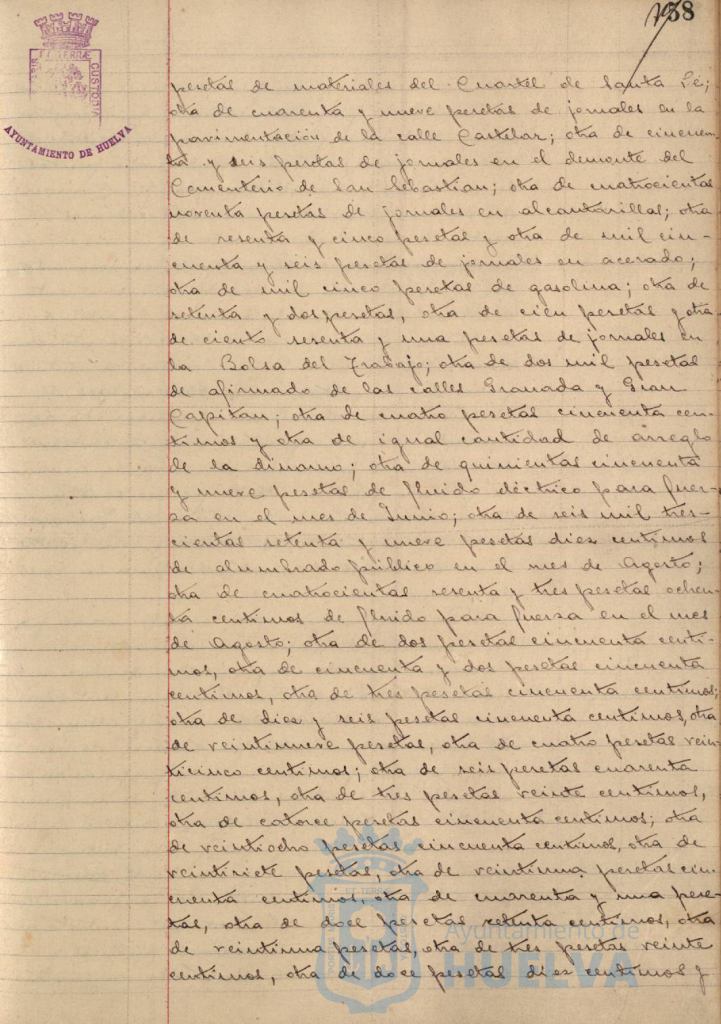 138
PORTUS MARIS ET TERRÆ CUSTODIA
AYUNTAMIENTO DE HUELVA
pesetas de materiales del Cuartel de Santa Fé;
otra de cuarenta y nueve pesetas de jornales en la
pavimentación de la calle Castelar; otra de cincuen-
ta y seis pesetas de jornales en el desmonte del
Cementerio de San Sebastian; otra de cuatrocientas
noventa pesetas de jornales en alcantarillas; otra
de sesenta y cinco pesetas y otra de mil cin-
cuenta y seis pesetas de jornales en acerado;
otra de mil cinco pesetas de gasolina; otra de
setenta y dos pesetas, otra de cien pesetas y otra
de ciento sesenta y una pesetas de jornales en
la Bolsa del Trabajo; otra de dos mil pesetas
de afirmado de las calles Granada y Gran
Capitan; otra de cuatro pesetas cincuenta cen-
timos y otra de igual cantidad de arreglo
de la dinamo; otra de quinientas cincuenta
y nueve pesetas de fluido eléctrico para fuer-
za en el mes de Junio; otra de seis mil tres-
cientas setenta y nueve pesetas diez centimos
de alumbrado público en el mes de Agosto;
otra de cuatrocientas sesenta y tres pesetas ochen-
ta centimos de fluido para fuerza en el mes
de Agosto; otra de dos pesetas cincuenta centi-
mos, otra de cincuenta y dos pesetas cincuenta
centimos, otra de tres pesetas cincuenta centimos;
otra de diez y seis pesetas cincuenta centimos, otra
de veintinueve pesetas, otra de cuatro pesetas vein-
ticinco centimos; otra de seis pesetas cuarenta
centimos, otra de tres pesetas veinte centimos,
otra de catorce pesetas cincuenta centimos; otra
de veintiocho pesetas cincuenta centimos, otra de
veintisiete pesetas, otra de veintiuna pesetas cin-
cuenta centimos, otra de cuarenta y una pese-
tas, otra de doce pesetas setenta centimos, otra
de veintiuna pesetas, otra de tres pesetas veinte
centimos, otra de doce pesetas diez centimos y
Ayuntamiento de
HUELVA